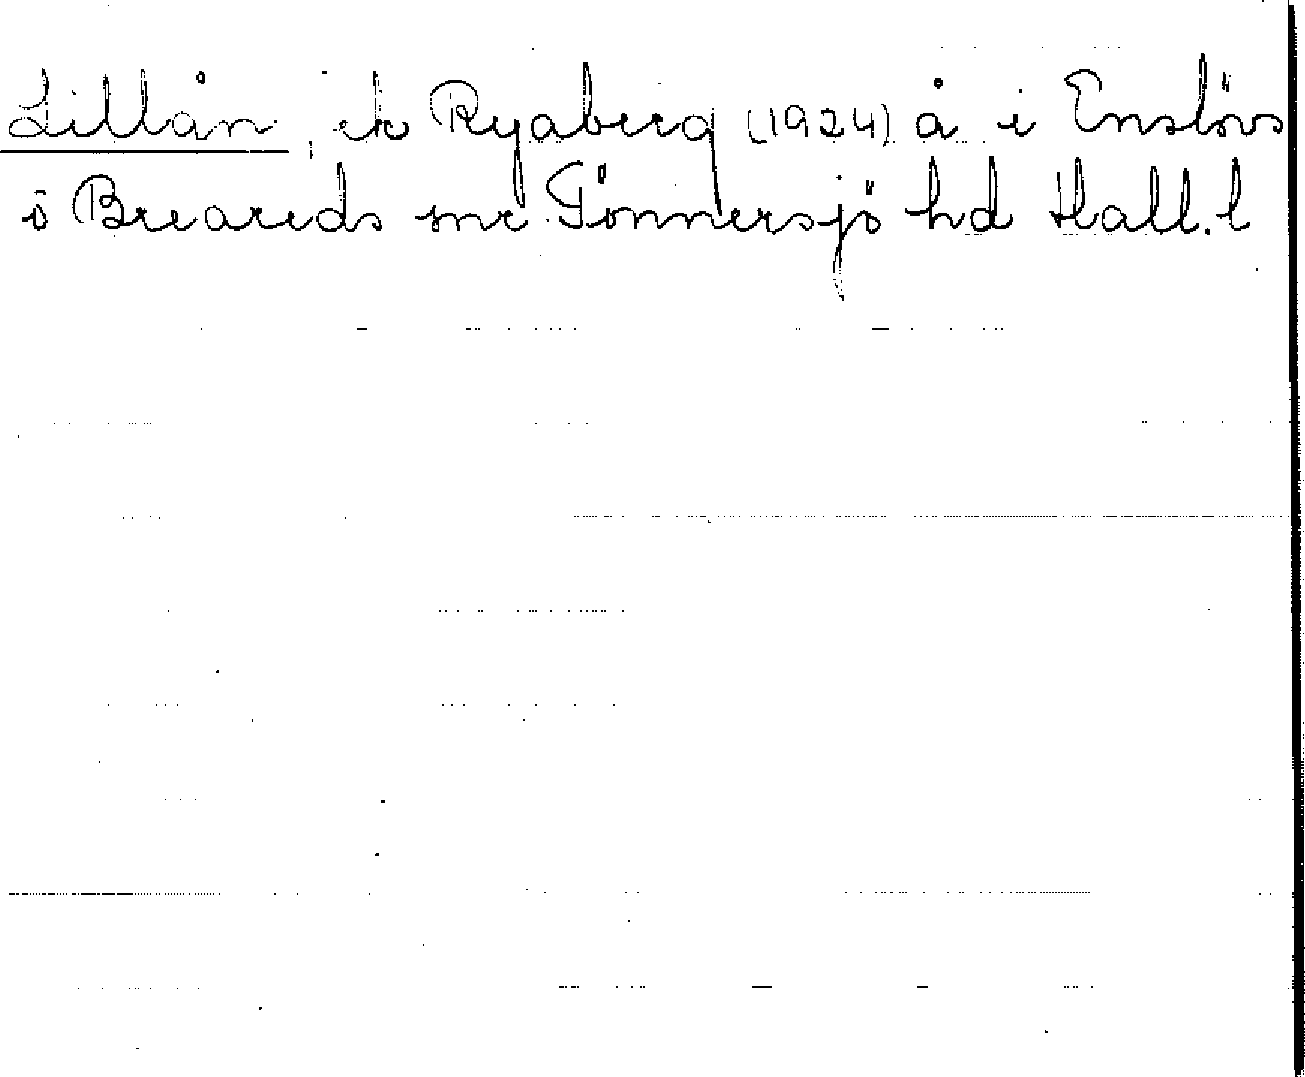 Lillån, ek Ryaberg (1924) å i Enslövs
o Breareds snr Tönnersjö hd Hall. l